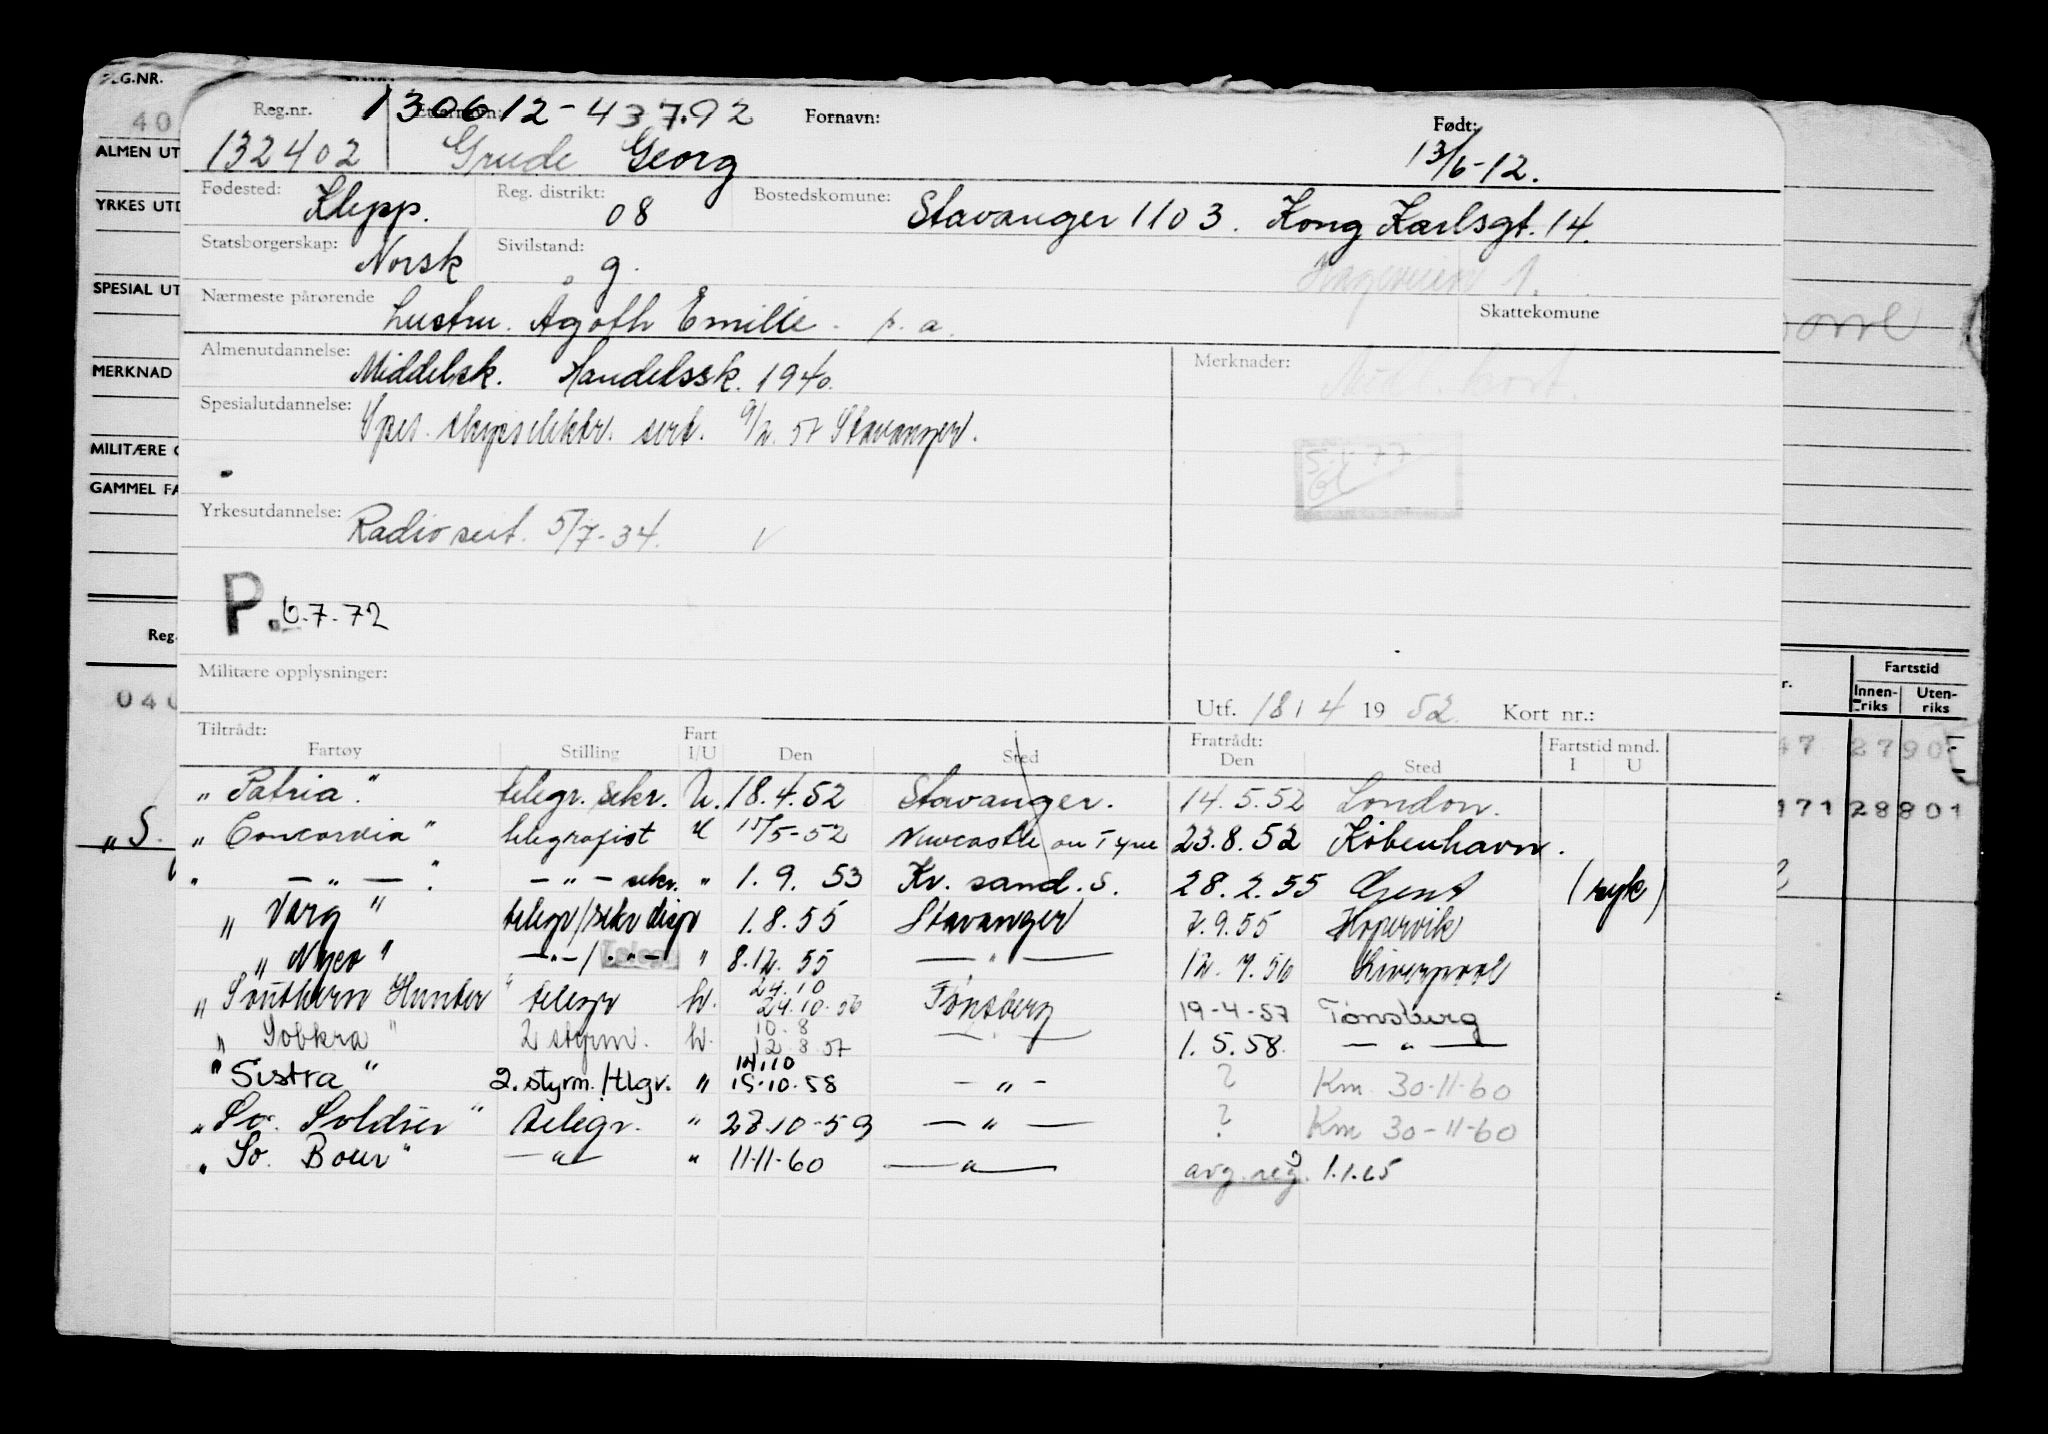 REG.NR.
40
ALMEN UT
YRKES UTD
SPECIAL UT
MERKNAD
MILITÆRE
GAMMEL FA
Reg.
040
"S.
Reg.nr. 130612-43792 Fornavn: Født:
132402 Grude Georg 13/6-12.
Fødested: Klepp. Reg. distrikt: 08 Bostedskomune: Stavanger 1103. Kong Karlsgt. 14.
Statsborgerskap: Norsk Sivilstand: g. Hageveien 1.
Nærmeste pårørende Hustru. Agoth Emilie. p.a. Skattekomune
Almenutdannelse: Middelsk. Handelssk. 1940. Merknader:
Spesialutdannelse: Spes. skipselektr. sert. 9/2. 57 Stavanger.
5.1.77
Yrkesutdannelse: Radiosert. 5/7-34. V
P. 6.7.72
Militære opplysninger:
Utf. 18/4 1952 Kort nr.:
Tiltrådt: Fratrådt: Fartstid mnd.
Fartøy Stilling Fart I/U Den Sted Den Sted I U
"Patria." telegr. sekr. U. 18.4.52 Stavanger. 14.5.52 London.
"Concordia" telegrafist U 15/5-52 Newcastle on Tyne 23.8.52 København.
" — " — " — " — sekr. " 1. 9. 53 Kr. sand. S. 28.2.55 Gent (syk)
"Varg" telegr/sekr disp 1.8.55 Stavanger 7.9.55 Kopervik
"Nyco" — " — / . " — " 8.12.55 — " — 12. 7.56 Liverpool
"Southern Hunter" telegr U. 24.10 24.10.56 Tønsberg 19-4-57 Tønsberg
"Sobkra" 2 styrm. U. 10.8 12.8.57 — " — 1.5.58. — " —
"Sistra" 2. styrm./tlgr. " 14.10 15.10.58 — " — ? Km. 30-11-60
"So. Soldier" telegr. " 28.10-59 — " — ? Km 30-11-60
"So. Bour" — " — " 11-11-60 — " — avg. reg. 1.1.65
r. Fartstid
Innenriks Utenriks
47 2790
171 28801